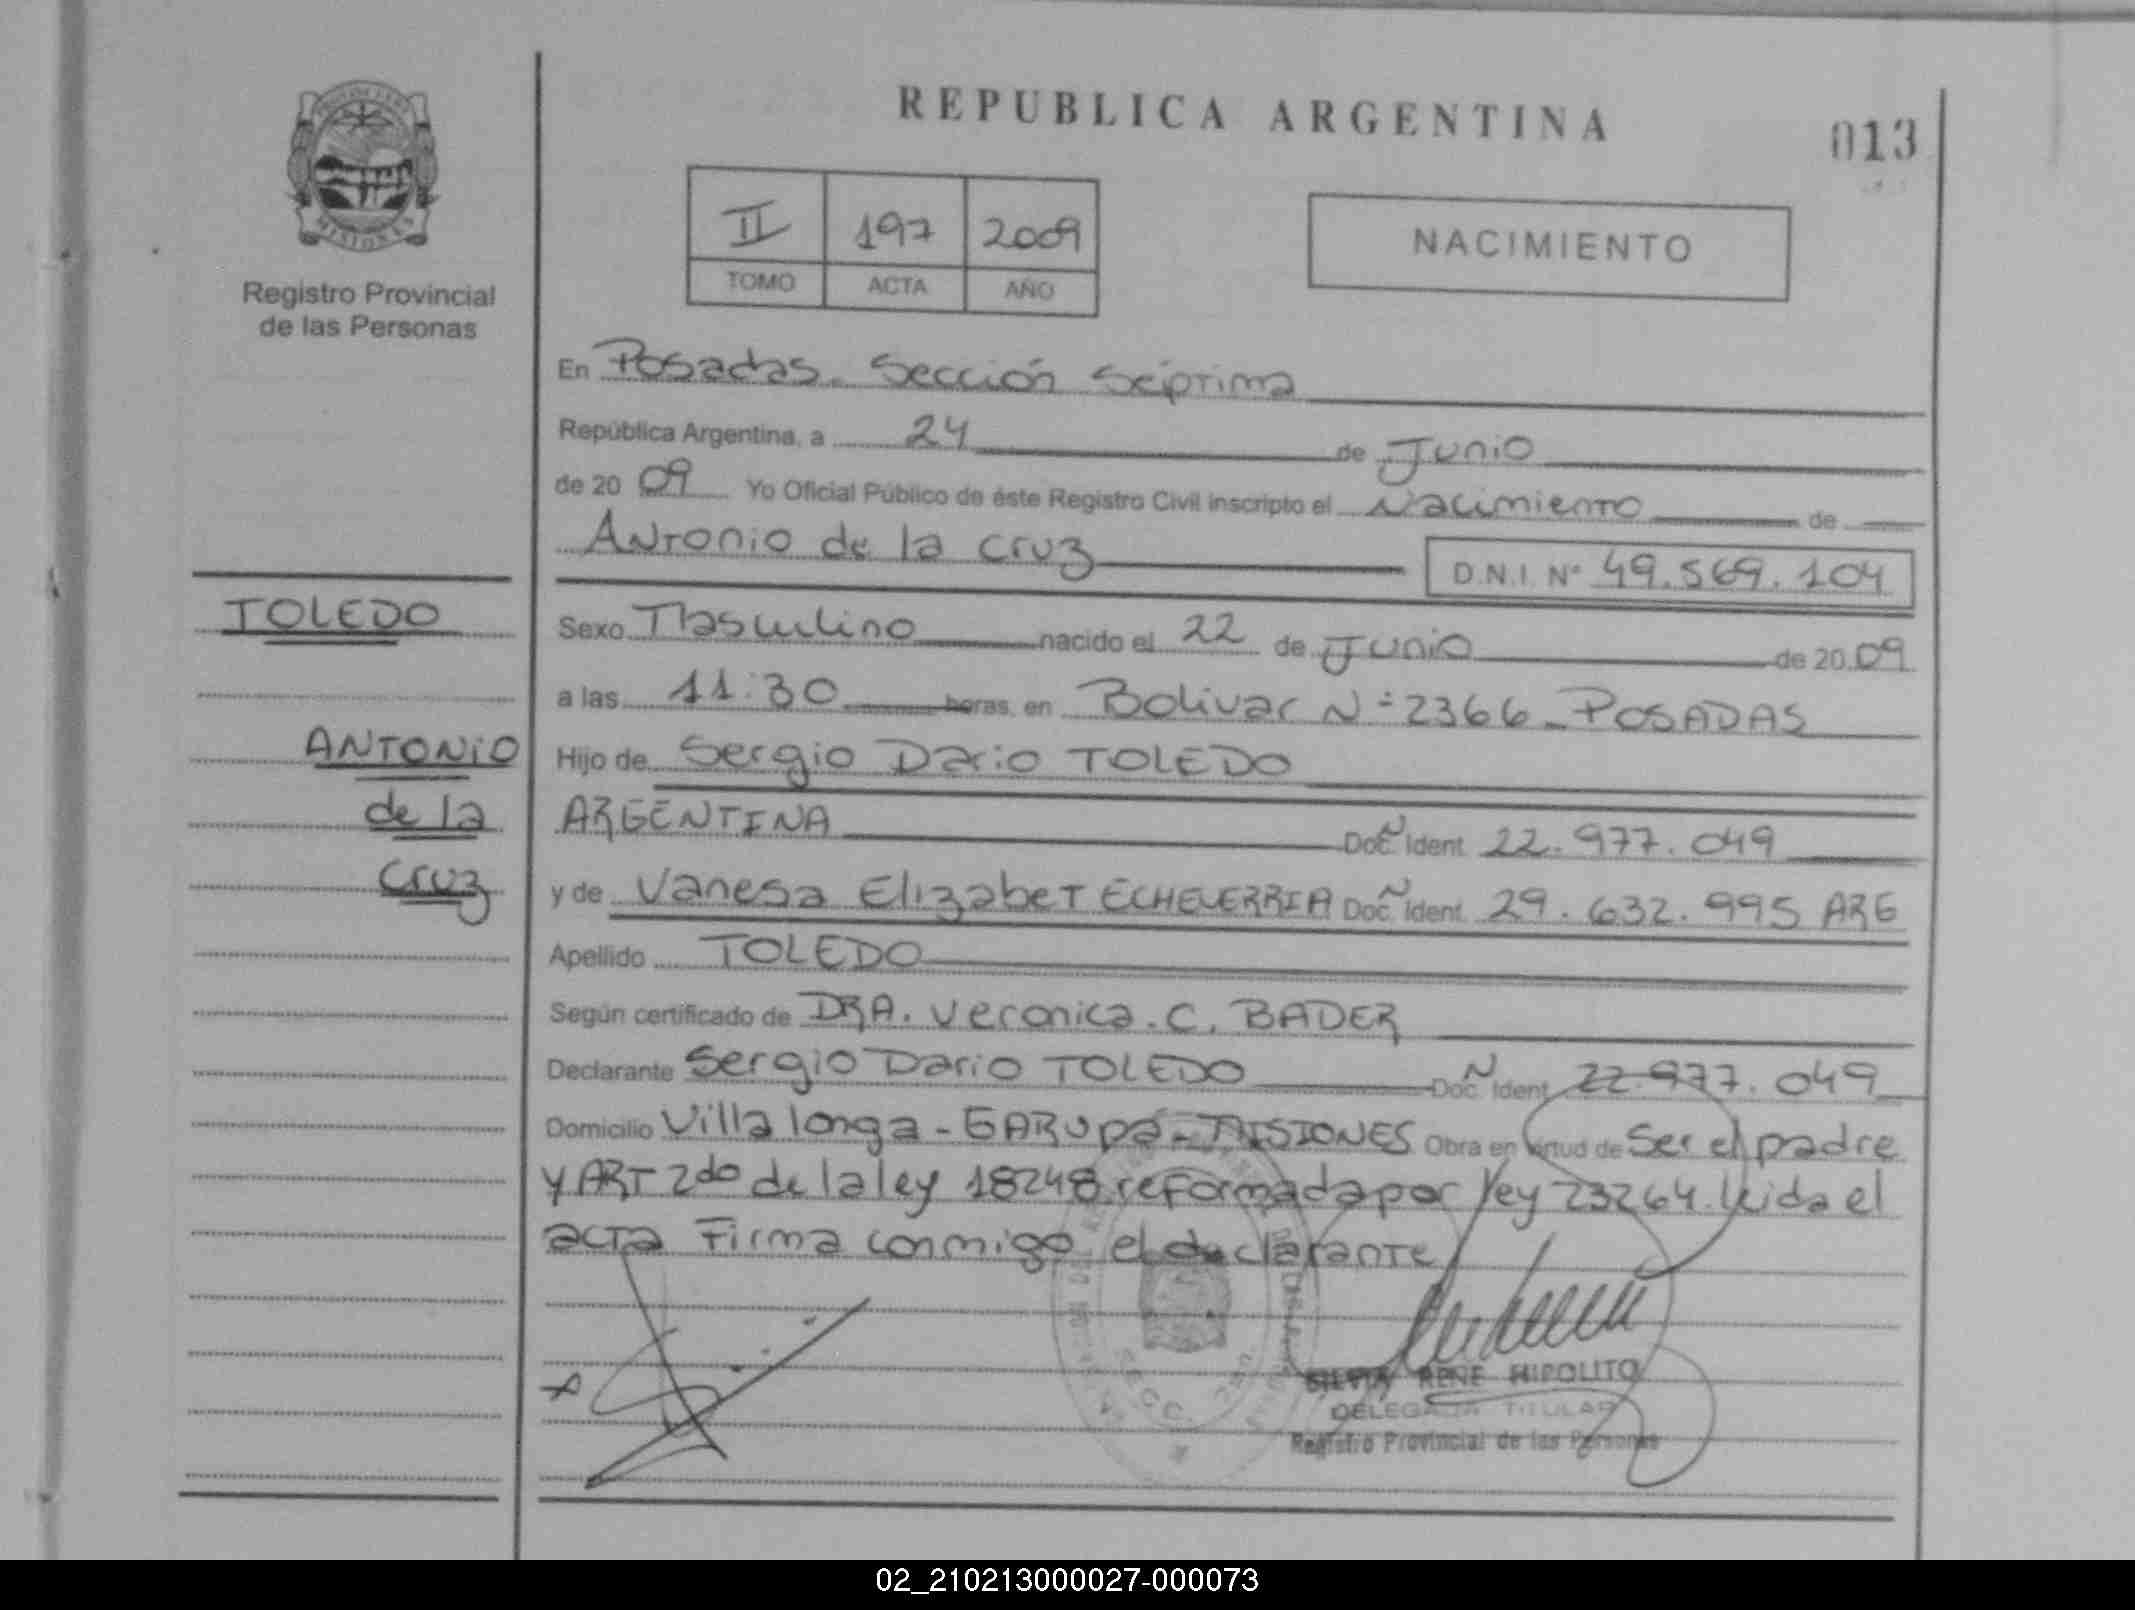 REPUBLICA ARGENTINA
013
PROVINCIA DE
MISIONES
Registro Provincial
de las Personas
II 197 2009
TOMO ACTA AÑO
NACIMIENTO
En Posadas. Sección Séptima
República Argentina, a 24 de Junio
de 2009 Yo Oficial Público de éste Registro Civil inscripto el Nacimiento de
Antonio de la Cruz
D.N.I. Nº 49.569.104
TOLEDO
ANTONIO
de la
Cruz
Sexo Masculino nacido el 22 de Junio de 2009
a las 11:30 horas, en Bolivar Nº 2366 - POSADAS
Hijo de Sergio Dario TOLEDO
ARGENTINA Doc. N Ident. 22.977.049
y de Vanesa Elizabet ECHEVERRIA Doc. N Ident. 29.632.995 ARG
Apellido TOLEDO
Según certificado de DRA. Veronica. C. BADER
Declarante Sergio Dario TOLEDO Doc. N Ident. 22.977.049
Domicilio Villa longa - GARUPÁ - MISIONES Obra en virtud de Ser el padre
y ART 2do de la ley 18248 reformada por ley 23264. leida el
acta Firma conmigo el declarante
SILVIA RENE HIPOLITO
DELEGADA TITULAR
Registro Provincial de las Personas
02_210213000027-000073